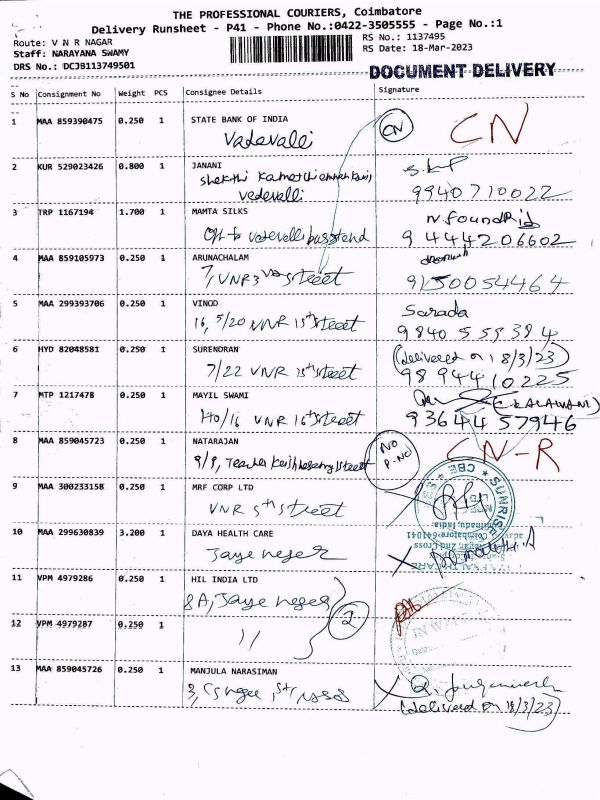 THE PROFESSIONAL COURIERS, Coimbatore
Delivery Runsheet - P41 - Phone No.:0422-3505555 - Page No.:1
Route: V N R NAGAR
Staff: NARAYANA SWAMY
DRS No.: DCJB113749501
RS No.: 1137495
RS Date: 18-Mar-2023
DOCUMENT DELIVERY
S No Consignment No Weight PCS Consignee Details Signature
1 MAA 859390475 0.250 1 STATE BANK OF INDIA CN CN
Vadavalli
2 KUR 529023426 0.800 1 JANANI
Shakthi
Vedevalli 9940710022
3 TRP 1167194 1.700 1 MAMTA SILKS
vadavalli busstend 9 444206602
4 MAA 859105973 0.250 1 ARUNACHALAM
7, VNR 3rd street 9150054464
5 MAA 299393706 0.250 1 VINOD Sarada
16, 5/20 VNR 15th street 9840 555384
6 HYD 82048581 0.250 1 SURENDRAN (delivered on 18/3/23)
7/22 VNR 15th street 98944 10225
7 MTP 1217478 0.250 1 MAYIL SWAMI
140/16 VNR 16th street 93644 57946
8 MAA 859045723 0.250 1 NATARAJAN NO P.NO CN-R
9/9, Teacher street
9 MAA 300233158 0.250 1 MRF CORP LTD
VNR 5th street
10 MAA 299630839 3.200 1 DAYA HEALTH CARE
Jaye neger
11 VPM 4979286 0.250 1 HIL INDIA LTD
8A, Jaye neger 2
12 VPM 4979287 0.250 1
11
13 MAA 859045726 0.250 1 MANJULA NARASIMAN
3,
(delivered on 18/3/23)
SUNRISE * CBE
2nd Cross
Coimbatore-641041
Tamilnadu, India.